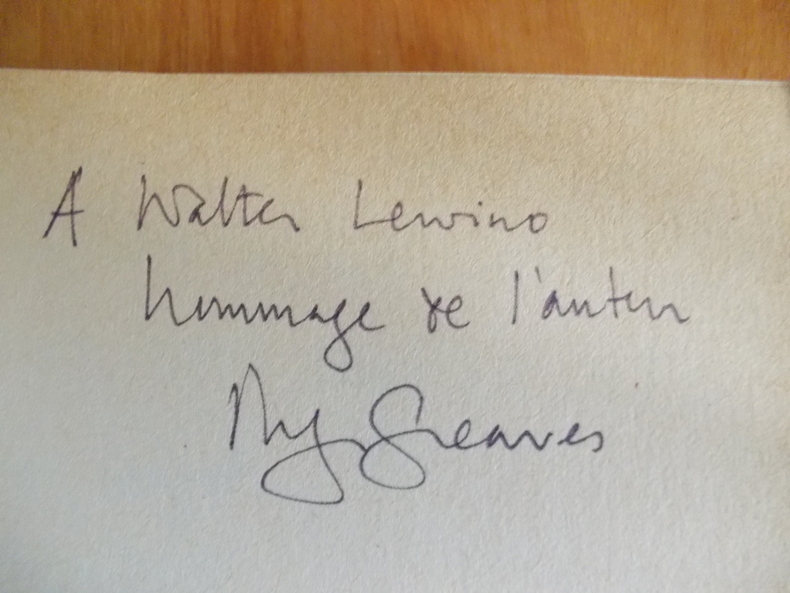 A Walter Lewino
hommage de l'auteur
Greaves